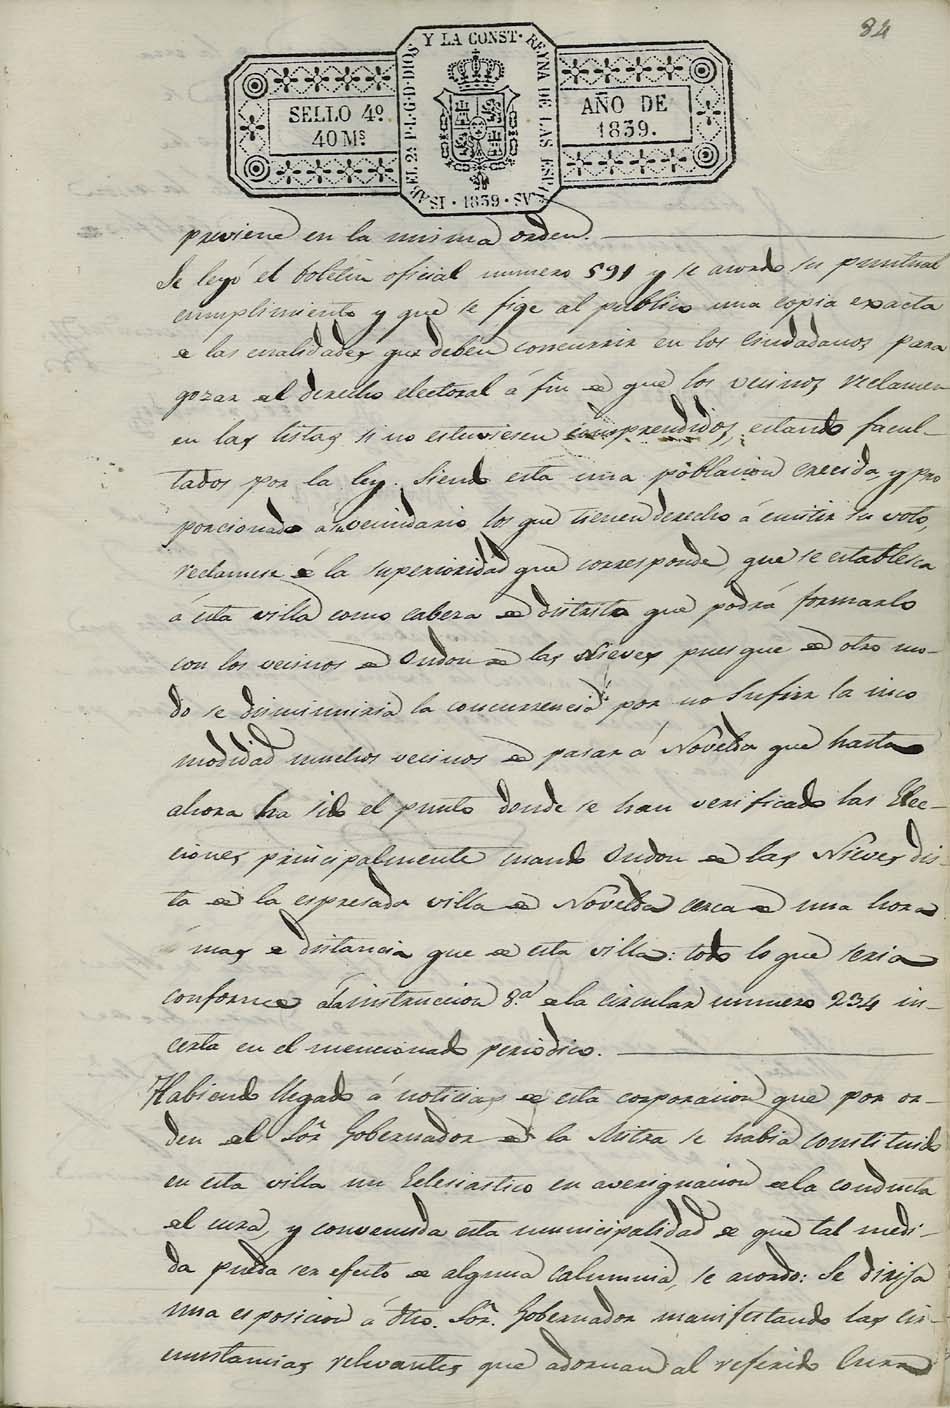 84
SELLO 4º
40 Mˢ
ISABEL 2ª P. L. G. D DIOS Y LA CONST. REYNA DE LAS ESPAÑAS
1839
AÑO DE
1839.
previene en la misma orden.
Se leyó el boletin oficial numero 591 y se acordo su puntual
cumplimiento y que se fige al publico una copia exacta
de las cualidades que deben concurrir en los Ciudadanos para
gozar del derecho electoral á fin de que los vecinos reclamen
en las listas si no estuviesen comprendidos, estando facul-
tados por la ley. Siendo esta una poblacion crecida, y pro
porcionado á su vecindario los que tienen derecho á emitir su voto,
reclamese de la superioridad que corresponde que se establesca
á esta villa como cabeza de distrito que podrá formarlo
con los vecinos de Ondon de las Nieves pues que de otro mo-
do se disminuiria la concurrencia por no sufrir la inco
modidad muchos vecinos de pasar á Novelda que hasta
ahora ha sido el punto donde se han verificado las Elec-
ciones principalmente cuando Ondon de las Nieves dis-
ta de la espresada villa de Novelda cerca de una hora
mas de distancia que de esta villa: todo lo que seria
conforme á la instruccion 8.ª de la circular numero 234 in-
certa en el mencionado periodico.
Habiendo llegado á noticias de esta corporacion que por or-
den del Sör. Gobernador de la Mitra se habia constituido
en esta villa un Eclesiastico en averiguacion de la conducta
del cura, y convencida esta municipalidad de que tal medi-
da pueda ser efecto de alguna calumnia, se acordo: Se dirija
una esposicion á dho. Sör. Gobernador manifestando las cir-
cunstancias relevantes que adornan al referido Cura